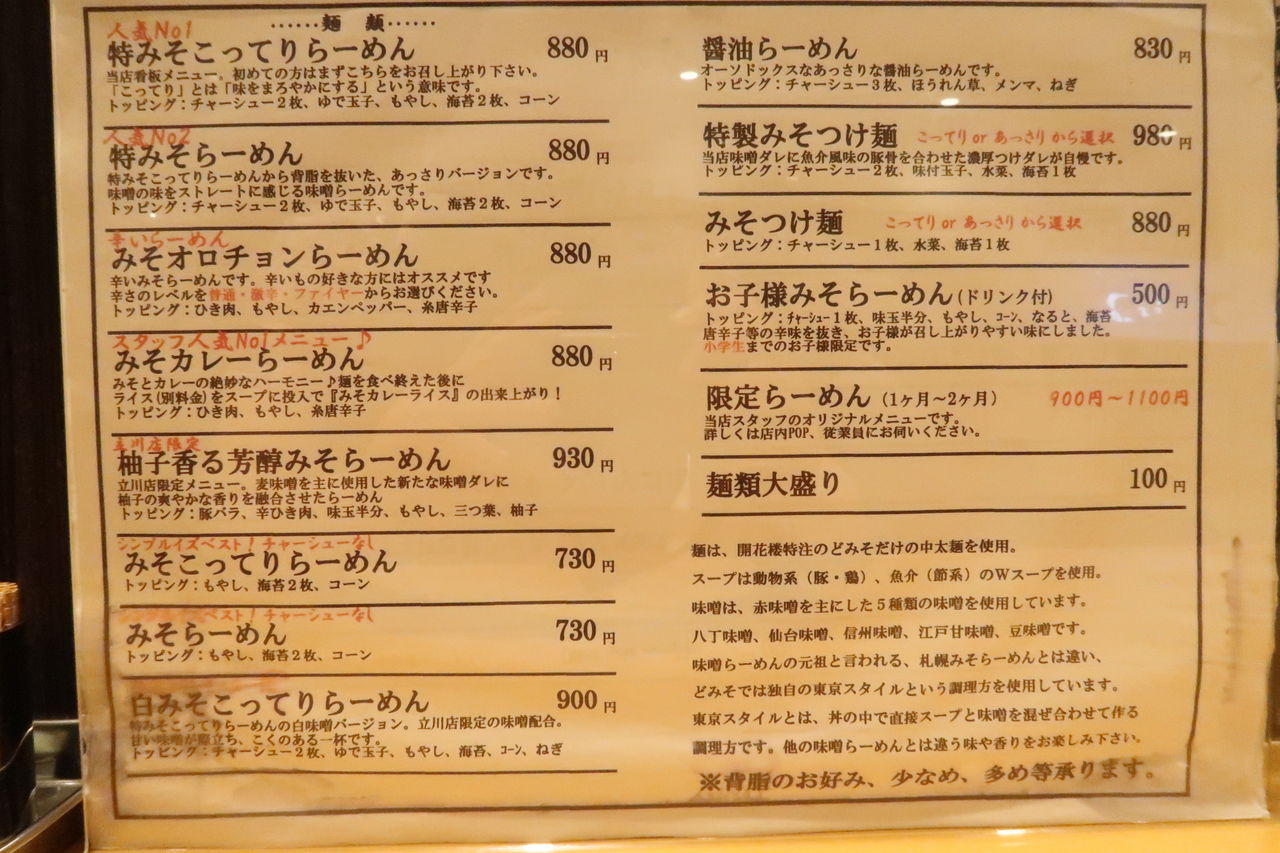 ……麺　類……
人気No1
特みそこってりらーめん 880円
当店看板メニュー。初めての方はまずこちらをお召し上がり下さい。
「こってり」とは「味をまろやかにする」という意味です。
トッピング：チャーシュー２枚、ゆで玉子、もやし、海苔２枚、コーン
人気No2
特みそらーめん 880円
特みそこってりらーめんから背脂を抜いた、あっさりバージョンです。
味噌の味をストレートに感じる味噌らーめんです。
トッピング：チャーシュー２枚、ゆで玉子、もやし、海苔２枚、コーン
辛いらーめん
みそオロチョンらーめん 880円
辛いみそらーめんです。辛いもの好きな方にはオススメです
辛さのレベルを普通・激辛・ファイヤーからお選びください。
トッピング：ひき肉、もやし、カエンペッパー、糸唐辛子
スタッフ人気No1メニュー♪
みそカレーらーめん 880円
みそとカレーの絶妙なハーモニー♪麺を食べ終えた後に
ライス(別料金)をスープに投入で『みそカレーライス』の出来上がり！
トッピング：ひき肉、もやし、糸唐辛子
立川店限定
柚子香る芳醇みそらーめん 930円
立川店限定メニュー。麦味噌を主に使用した新たな味噌ダレに
柚子の爽やかな香りを融合させたらーめん
トッピング：豚バラ、辛ひき肉、味玉半分、もやし、三つ葉、柚子
シンプルイズベスト！チャーシューなし
みそこってりらーめん 730円
トッピング：もやし、海苔２枚、コーン
シンプルイズベスト！チャーシューなし
みそらーめん 730円
トッピング：もやし、海苔２枚、コーン
白みそこってりらーめん 900円
特みそこってりらーめんの白味噌バージョン。立川店限定の味噌配合。
甘い味噌が際立ち、こくのある一杯です。
トッピング：チャーシュー２枚、ゆで玉子、もやし、海苔、ｺｰﾝ、ねぎ
醤油らーめん 830円
オーソドックスなあっさりな醤油らーめんです。
トッピング：チャーシュー３枚、ほうれん草、メンマ、ねぎ
特製みそつけ麺 こってり or あっさり から選択 980円
当店味噌ダレに魚介風味の豚骨を合わせた濃厚つけダレが自慢です。
トッピング：チャーシュー２枚、味付玉子、水菜、海苔１枚
みそつけ麺 こってり or あっさり から選択 880円
トッピング：チャーシュー１枚、水菜、海苔１枚
お子様みそらーめん(ドリンク付) 500円
トッピング：ﾁｬｰｼｭｰ１枚、味玉半分、もやし、ｺｰﾝ、なると、海苔
唐辛子等の辛味を抜き、お子様が召し上がりやすい味にしました。
小学生までのお子様限定です。
限定らーめん（1ヶ月～2ヶ月） 900円～1100円
当店スタッフのオリジナルメニューです。
詳しくは店内POP、従業員にお伺いください。
麺類大盛り 100円
麺は、開花楼特注のどみそだけの中太麺を使用。
スープは動物系（豚・鶏）、魚介（節系）のＷスープを使用。
味噌は、赤味噌を主にした５種類の味噌を使用しています。
八丁味噌、仙台味噌、信州味噌、江戸甘味噌、豆味噌です。
味噌らーめんの元祖と言われる、札幌みそらーめんとは違い、
どみそでは独自の東京スタイルという調理方を使用しています。
東京スタイルとは、丼の中で直接スープと味噌を混ぜ合わせて作る
調理方です。他の味噌らーめんとは違う味や香りをお楽しみ下さい。
※背脂のお好み、少なめ、多め等承ります。